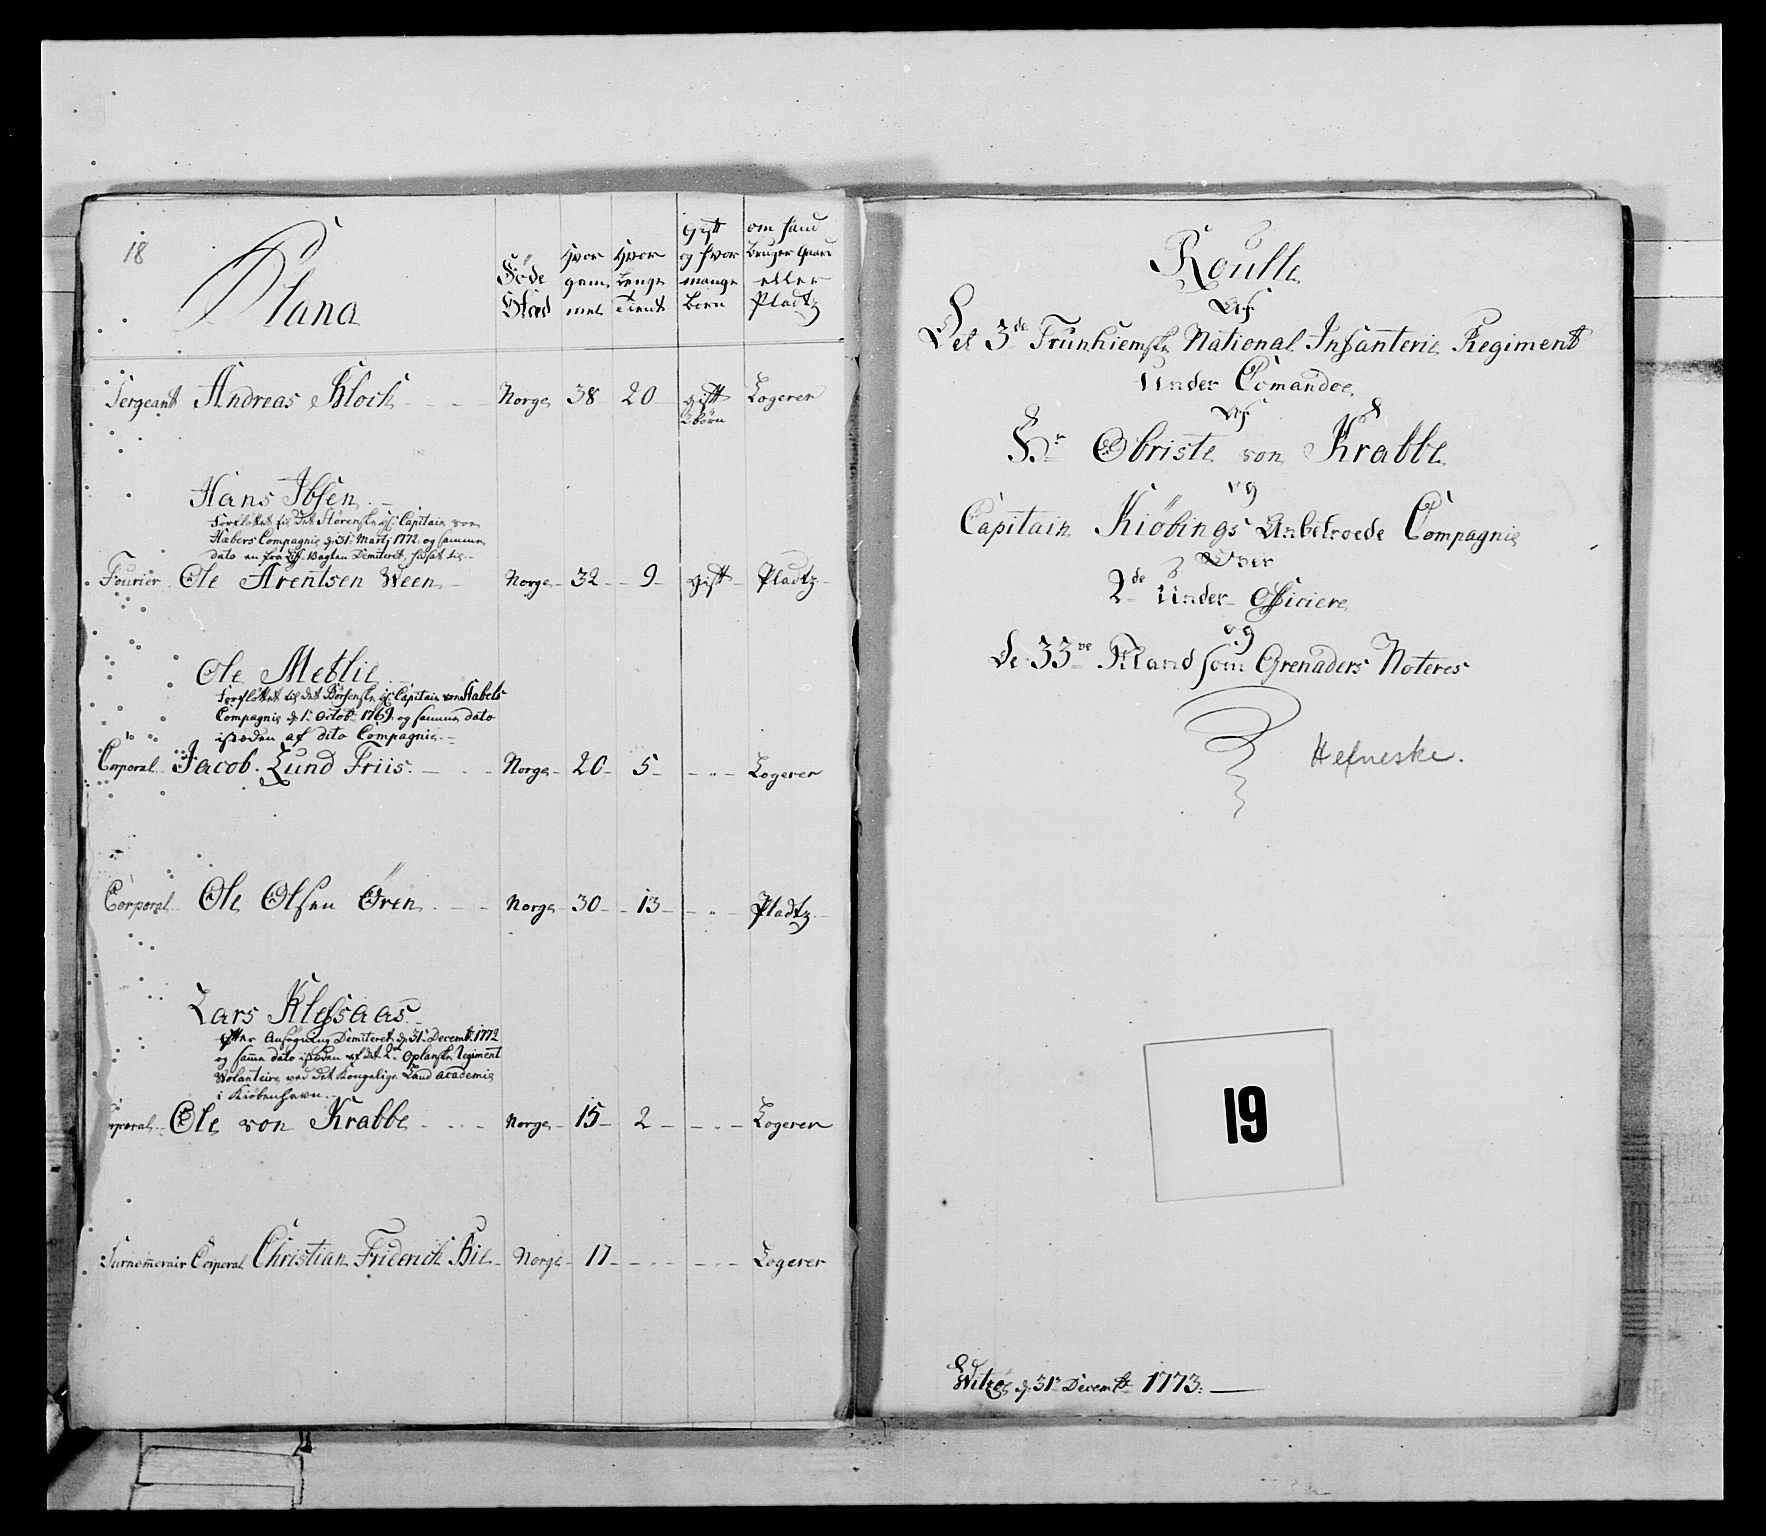 18
Plana
Føde Stæd
Hvor gam mel
Hvor Lenge Tient
Gift og hvor mange Børn
om hand Bruger Gaard eller Pladtz
Sergeant Andreas Kloch Norge 38 20 gift 2 børn Logerer
Hans Ibsen
forfløttet til Det Størenske Capitain von
Habers Compagnie d. 31 Martj 1772 og samme
dato en fra Demiteret, hidsat til
Fourier Ole Arentsen Ween Norge 32 9 gift Pladtz
Ole Metlie
forfløttet til det Børsenske Capitain von Habels
Compagnie d. 1 Octobr 1769 og samme dato
isteden af dito Compagnie
Corporal Jacob Lund Friis Norge 20 5 Logerer
Corporal Ole Olsen Ören Norge 30 13 Pladtz
Lars Klefsaas
efter Ansøgning Demiteret d. 31 Decembr 1772
og samme dato isteden af det 2 Oplanske Regiment
Volanteire ved det Kongelige Land academie
i Kiøbenhavn
rporal Ole von Krabbe Norge 15 2 Logerer
Surnomerair Corporal Christian Friderich Bie Norge 17 Logerer
Roulle
Af
Det 3de Trunhiemske National Infanterie Regiment
Under Comandoe
Af
Hr Obriste von Krabbe
og
Capitain Kiøbings Anbetroede Compagnie
Over
2de Under Officiere
og
De 33ve Mand som Grenaders Noteres
Hefneske.
19
d. 31 Decembr 1773.